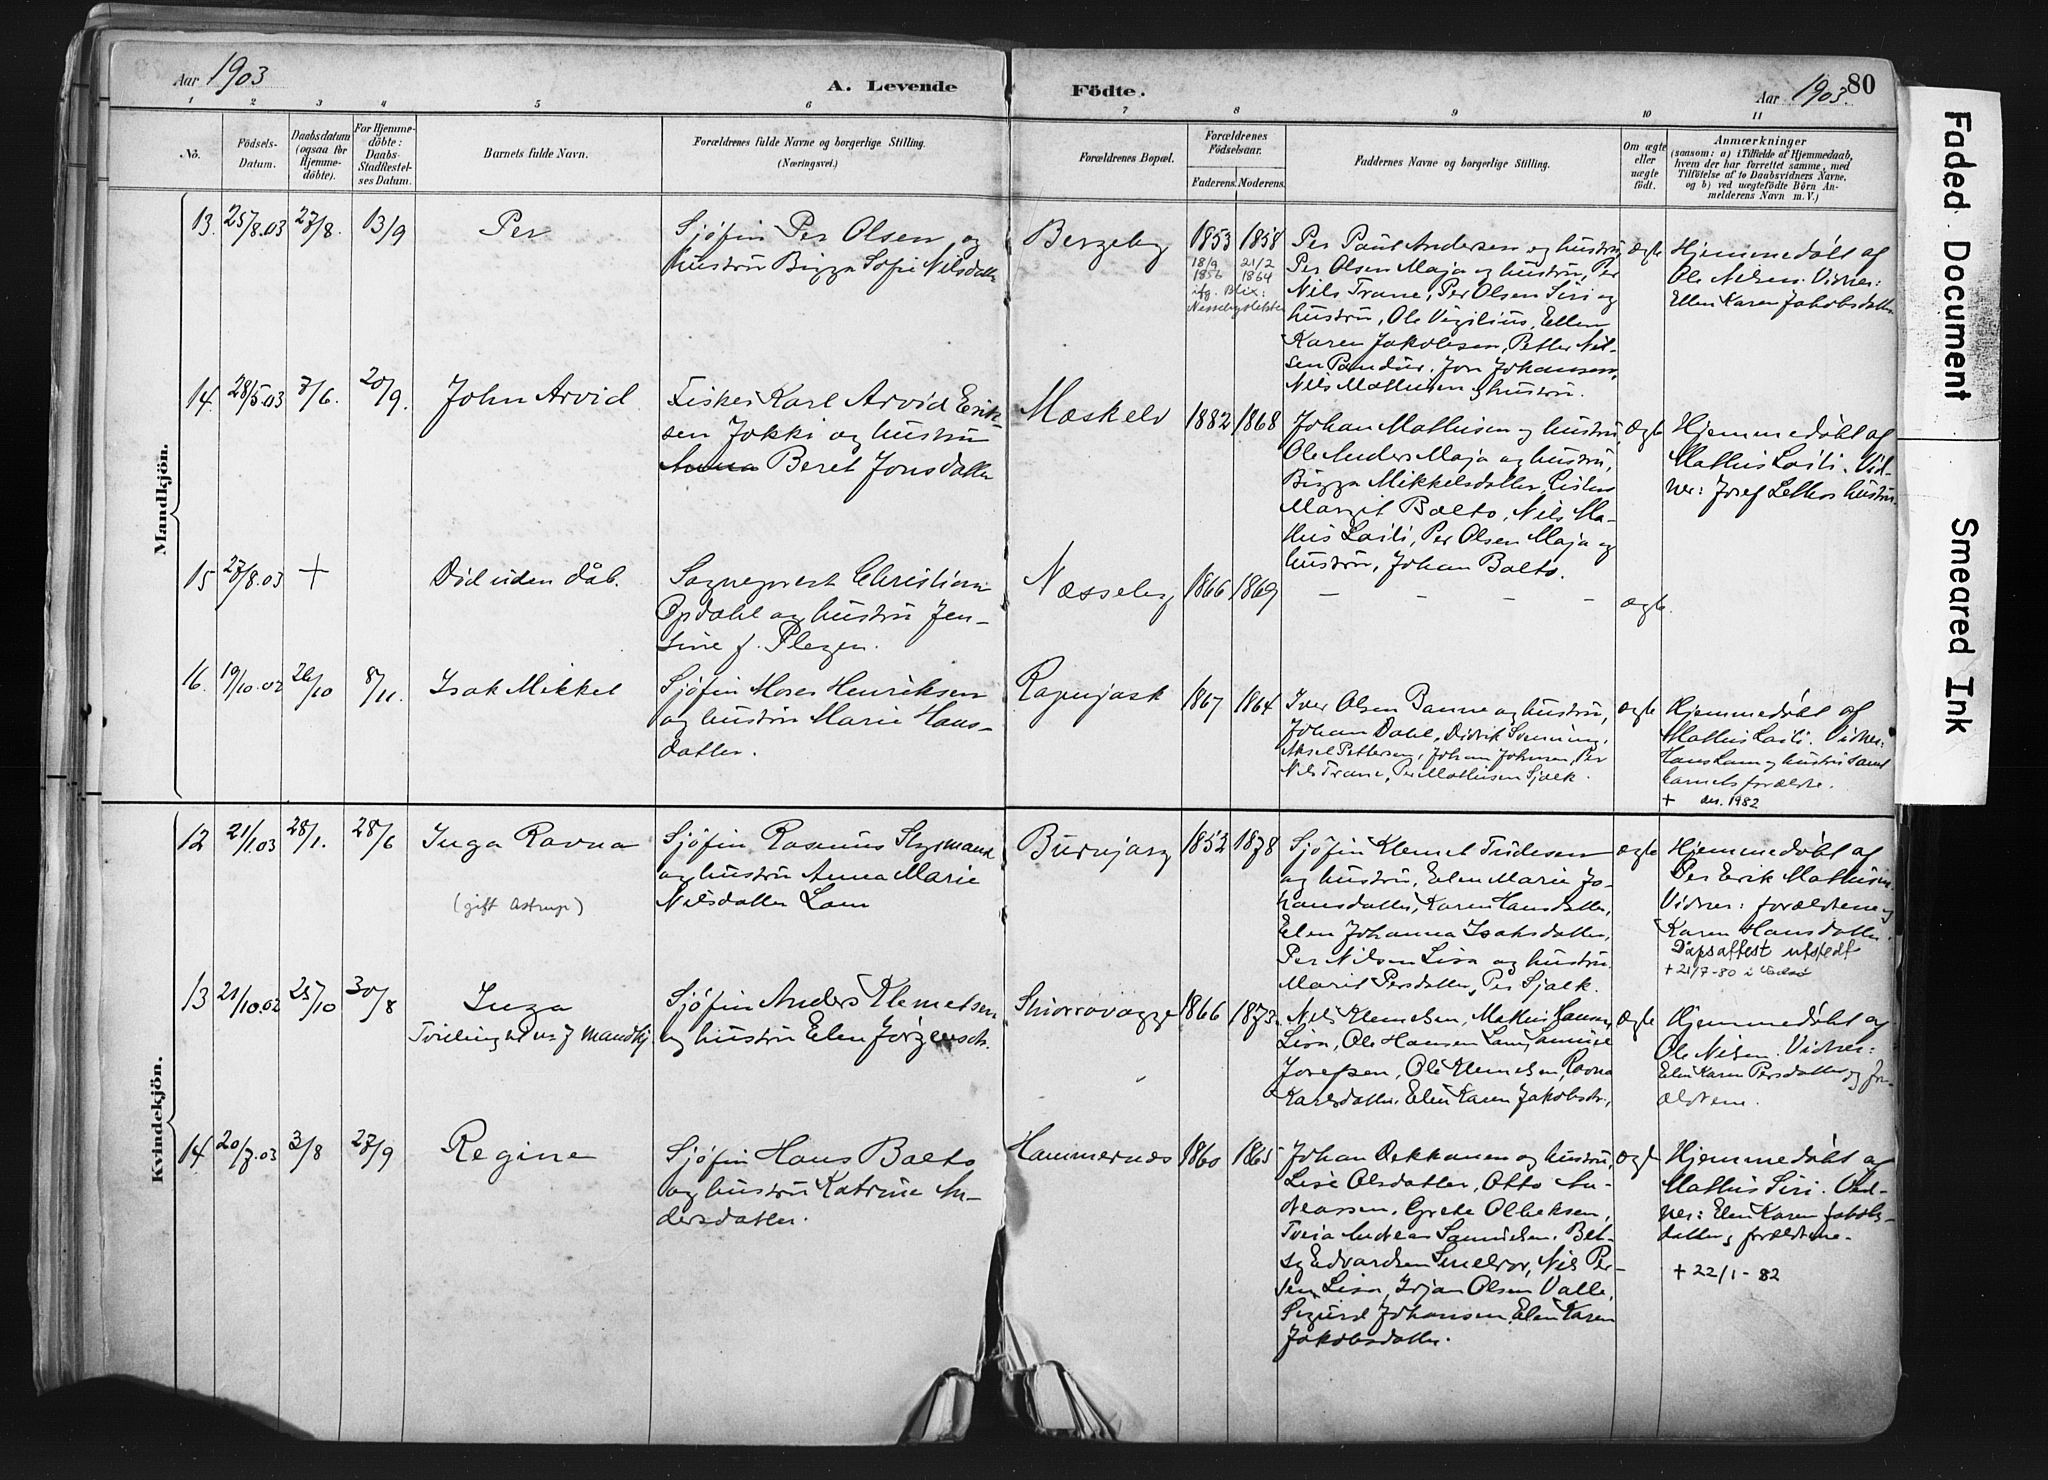 Aar 1903
A. Levende Födte.
Aar 1903.
80
1 2 3 4 5 6 7 8 9 10 11
No.
Födsels-
Datum.
Daabsdatum
(ogsaa for
Hjemme-
döbte).
For Hjemme-
döbte:
Daabs-
Stadfæstel-
ses Datum.
Barnets fulde Navn.
Forældrenes fulde Navne og borgerlige Stilling.
(Næringsvei.)
Forældrenes Bopæl.
Forældrenes
Födselsaar.
Faderens. Moderens.
Faddernes Navne og borgerlige Stilling.
Om ægte
eller
uægte
födt.
Anmærkninger
(saasom: a) i Tilfælde af Hjemmedaab,
hvem der har forrettet samme, med
Tilföielse af to Daabsvidners Navne,
og b) ved uægtefödte Börn An-
melderens Navn m. V.)
Mandkjön.
13. 25/8.03 27/8. 13/9 Per
Sjøfin Per Olsen og
hustru Bigga Sofie Nilsdatter
Bergeby 1853 1858
18/9 21/2
1856 1864
ifg. Blix:
Per Paul Andersen og hustru,
Per Olsen Maja og hustru, Per
Nils Trane, Per Olsen Siri og
hustru, Ole Vigilius, Ellen
Karen Jakobsen, Petter Nil-
sen Pandur, Jon Johansen,
Nils Mathisen og hustru.
ægte
Hjemmedøbt af
Ole Nilsen. Vidner:
Ellen Karen Jakobsdatter
14. 28/5.03 7/6. 20/9. John Arvid
Fisker Karl Arvid Erik-
sen Jokki og hustru
Anna Beret Jonsdatter
Mæskelv 1882 1868
Johan Mathisen og hustru,
Ole Anders Maja og hustru,
Bigga Mikkelsdatter,
Margit Balto, Nils Ma-
this Laiti, Per Olsen Maja og
hustru, Johan Balto.
ægte
Hjemmedøbt af
Mathis Laiti. Vid-
ner: Josef hustru
15 27/8.03 +
Død uden dåb.
Sogneprest Christian
Opdahl og hustru Jen-
sine f. Plezen.
Næsseby 1866 1869
- - - -
ægte.
16. 19/10.02 26/10 8/11. Isak Mikkel
Sjøfin Moses Henriksen
og hustru Marie Hans-
datter.
1867 1864
Iver Olsen Banne og hustru,
Johan Dahl, Didrik
Aksel Pettersen, Johan Johnsen, Per
Nils Trane, Per Mathisen Sjalk.
ægte
Hjemmedøbt af
Mathis Laiti. Vidner:
Hans Lam og hustru samt
barnets forældre.
+ des. 1982
Kvindekjön.
12 21/1.03 28/1. 28/6 Inga Ravna
(gift Astrup)
Sjøfin Rasmus Styrmand
og hustru Anna Marie
Nilsdatter Lam
Burnjarg 1853 1878
Sjøfin Klemet Tudesen
og hustru, Elen Marie Jo-
hansdatter, Karen Hansdatter,
Elen Johanna Isaksdatter,
Per Nilsen Lisa og hustru
Marit Persdatter, Per Sjalk.
ægte
Hjemmedøbt af
Per Erik Mathisen.
Vidner: forældrene og
Karen Hansdatter.
Dåpsattest utstedt
+ 21/7-80 i Vadsø
13 21/10.02 25/10 30/8 Inga
Tvilling til nr 7 mandkj.
Sjøfin Anders Klemetsen
og hustru Elen Jørgensdt.
1866 1873.
Nils Klemetsen, Mathis Hansen
Lisa, Ole Hansen Lam, Samuel
Josefsen, Ole Klemetsen, Ravna
Karlsdatter, Elen Karen Jakobsdt.,
ægte
Hjemmedøbt af
Ole Nilsen. Vidner:
Elen Karen Persdatter og for-
ældrene.
14 20/7.03 3/8 27/9 Regine
Sjøfin Hans Balto
og hustru Katrine An-
dersdatter.
Hammernæs 1860 1865
Johan Dikkanen og hustru,
Lise Olsdatter, Otto An-
dreassen, Grete
Andreas Samuelsen, Bet-
sy Edvardsen Smelror, Nils Per-
sen Lisa, Olsen Valle,
Sigurd Johansen, Elen Karen
Jakobsdatter.
ægte
Hjemmedøbt af
Mathis Siri. Vid-
ner: Elen Karen Jakobs-
datter og forældrene.
+ 22/1-82
Faded Document
Smeared Ink